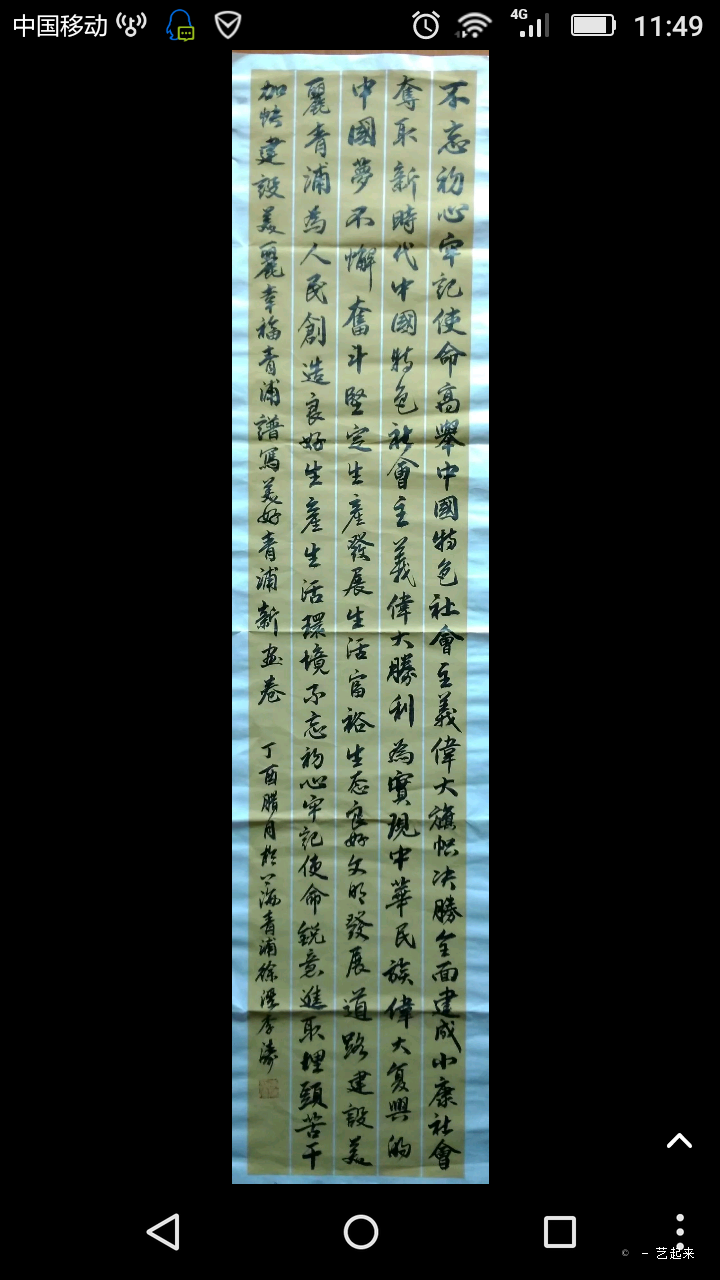 中国移动 4G 11:49
不忘初心牢記使命高舉中國特色社會主義偉大旗幟决勝全面建成小康社會
奪取新時代中國特色社會主義偉大勝利為實現中華民族偉大复興的
中國夢不懈奮斗堅定生產發展生活富裕生态良好文明發展道路建設美
麗青浦為人民創造良好生產生活環境不忘初心牢記使命銳意進取埋頭苦干
加快建設美麗幸福青浦譜寫美好青浦新画卷
丁酉腊月於上海青浦徐涇李濤
© － 艺起来